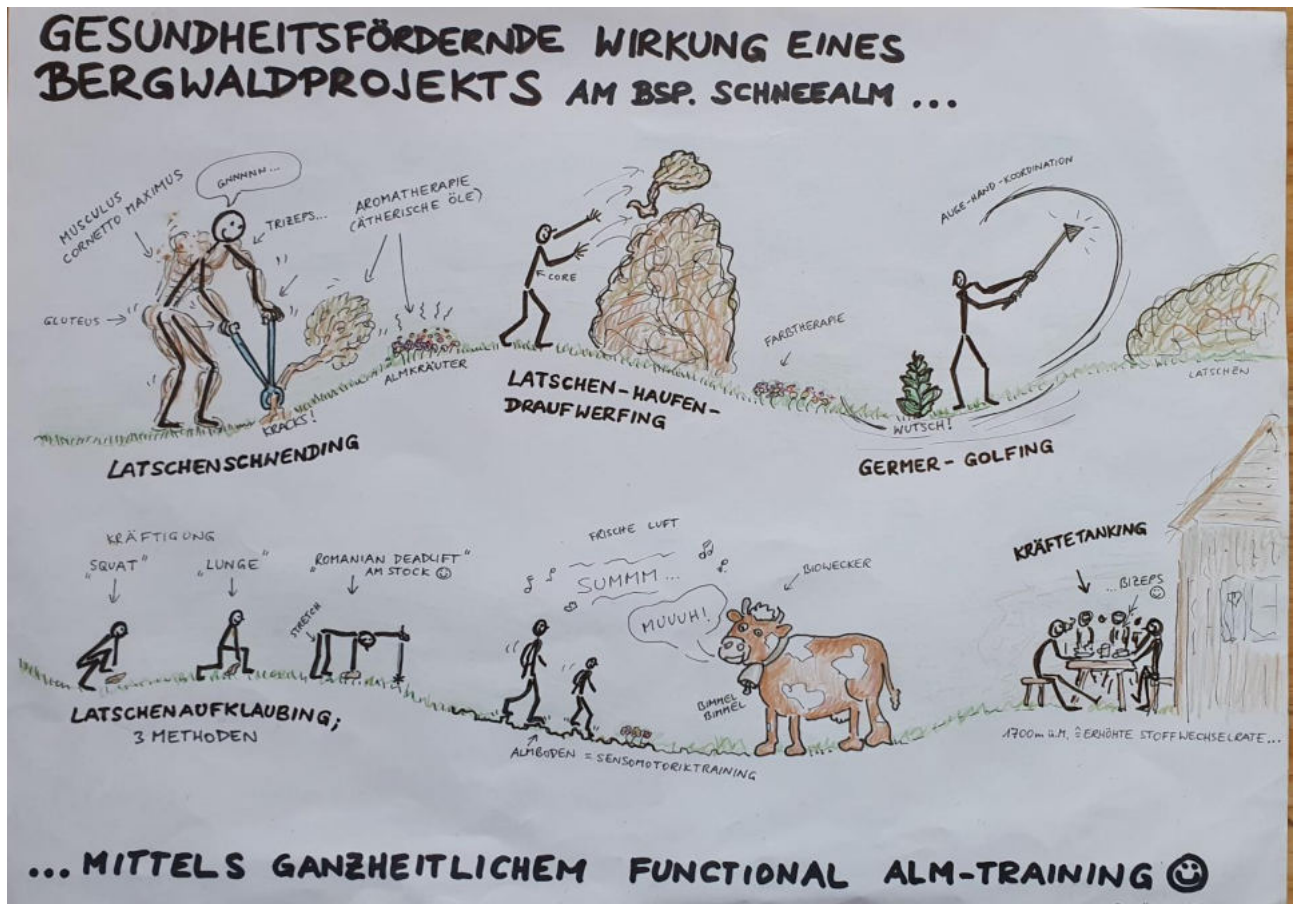 GESUNDHEITSFÖRDERNDE WIRKUNG EINES
BERGWALDPROJEKTS AM BSP. SCHNEEALM ...
MUSCULUS
CORNETTO MAXIMUS
GNNNNN...
TRIZEPS...
AROMATHERAPIE
(ÄTHERISCHE ÖLE)
GLUTEUS
ALMKRÄUTER
KRACKS!
LATSCHENSCHWENDING
CORE
LATSCHEN-HAUFEN-
DRAUFWERFING
FARBTHERAPIE
AUGE-HAND-KOORDINATION
WUTSCH!
GERMER-GOLFING
LATSCHEN
KRÄFTIGUNG
„SQUAT"
„LUNGE"
„ROMANIAN DEADLIFT"
AM STOCK ☺
STRETCH
LATSCHENAUFKLAUBING;
3 METHODEN
FRISCHE LUFT
SUMMM...
MUUUH!
BIOWECKER
BIMMEL
BIMMEL
ALMBODEN = SENSOMOTORIKTRAINING
KRÄFTETANKING
...BIZEPS
☺
1700m ü.M. ≙ ERHÖHTE STOFFWECHSELRATE...
... MITTELS GANZHEITLICHEM FUNCTIONAL ALM-TRAINING ☺